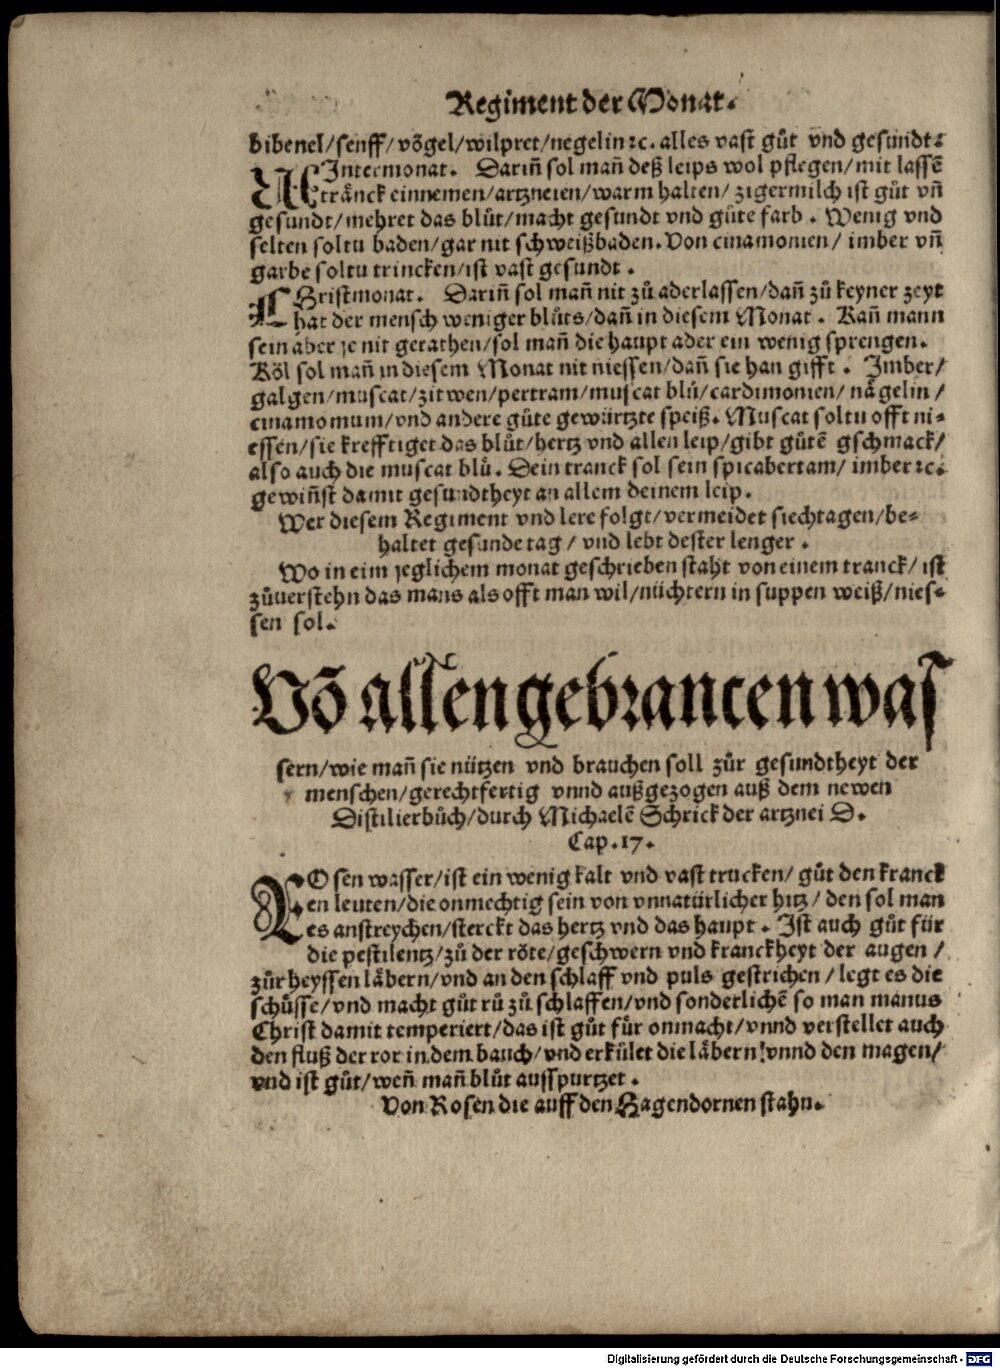 Regiment der Monat.
bibenel/senff/vögel/wilpret/negelin ꝛc. alles vast gůt vnd gesundt.
WIntermonat. Dariñ sol mañ deß leips wol pflegen/mit lassē
tränck einnemen/artzneien/warm halten/ zigermilch ist gůt vñ
gesundt/mehret das blůt/macht gesundt vnd gůte farb. Wenig vnd
selten soltu baden/gar nit schweißbaden. Von cinamomen/ imber vñ
garbe soltu trincken/ist vast gesundt.
CHristmonat. Dariñ sol mañ nit zů aderlassen/dañ zů keyner zeyt
hat der mensch weniger blůts/dañ in diesem Monat. Kañ mann
sein aber je nit gerathen/sol mañ die haupt ader ein wenig sprengen.
Köl sol mañ in diesem Monat nit niessen/dañ sie han gifft. Imber/
galgen/muscat/zitwen/pertram/muscat blů/cardimomen/ nägelin/
cinamomum/vnd andere gůte gewürtzte speiß. Muscat soltu offt ni-
essen/sie krefftiget das blůt/hertz vnd allen leip/gibt gůtē gschmack/
also auch die muscat blů. Dein tranck sol sein spicabertam/ imber ꝛc.
gewiñst damit gesundtheyt an allem deinem leip.
Wer diesem Regiment vnd lere folgt/vermeidet siechtagen/be-
haltet gesunde tag/ vnd lebt dester lenger.
Wo in eim jeglichem monat geschrieben staht von einem tranck/ ist
zůuerstehn das mans als offt man wil/nüchtern in suppen weiß/nies-
sen sol.
Võ allen gebrancen was
sern/wie mañ sie nützen vnd brauchen soll zůr gesundtheyt der
menschen/gerechtfertig vnnd außgezogen auß dem newen
Distilierbůch/durch Michaelē Schrick der artznei D.
Cap. 17.
ROsen wasser/ist ein wenig kalt vnd vast trucken/ gůt den kranck
en leuten/die onmechtig sein von vnnatürlicher hitz/ den sol man
es anstreychen/sterckt das hertz vnd das haupt. Ist auch gůt für
die pestilentz/zů der röte/geschwern vnd kranckheyt der augen/
zůr heyssen läbern/vnd an den schlaff vnd puls gestrichen/legt es die
schüsse/vnd macht gůt rů zů schlaffen/vnd sonderlichē so man manus
Christ damit temperiert/das ist gůt für onmacht/vnnd verstellet auch
den fluß der ror in dem bauch/vnd erkület die läbern/vnnd den magen/
vnd ist gůt/weñ mañ blůt ausspurtzet.
Von Rosen die auff den Hagendornen stahn.
Digitalisierung gefördert durch die Deutsche Forschungsgemeinschaft - DFG